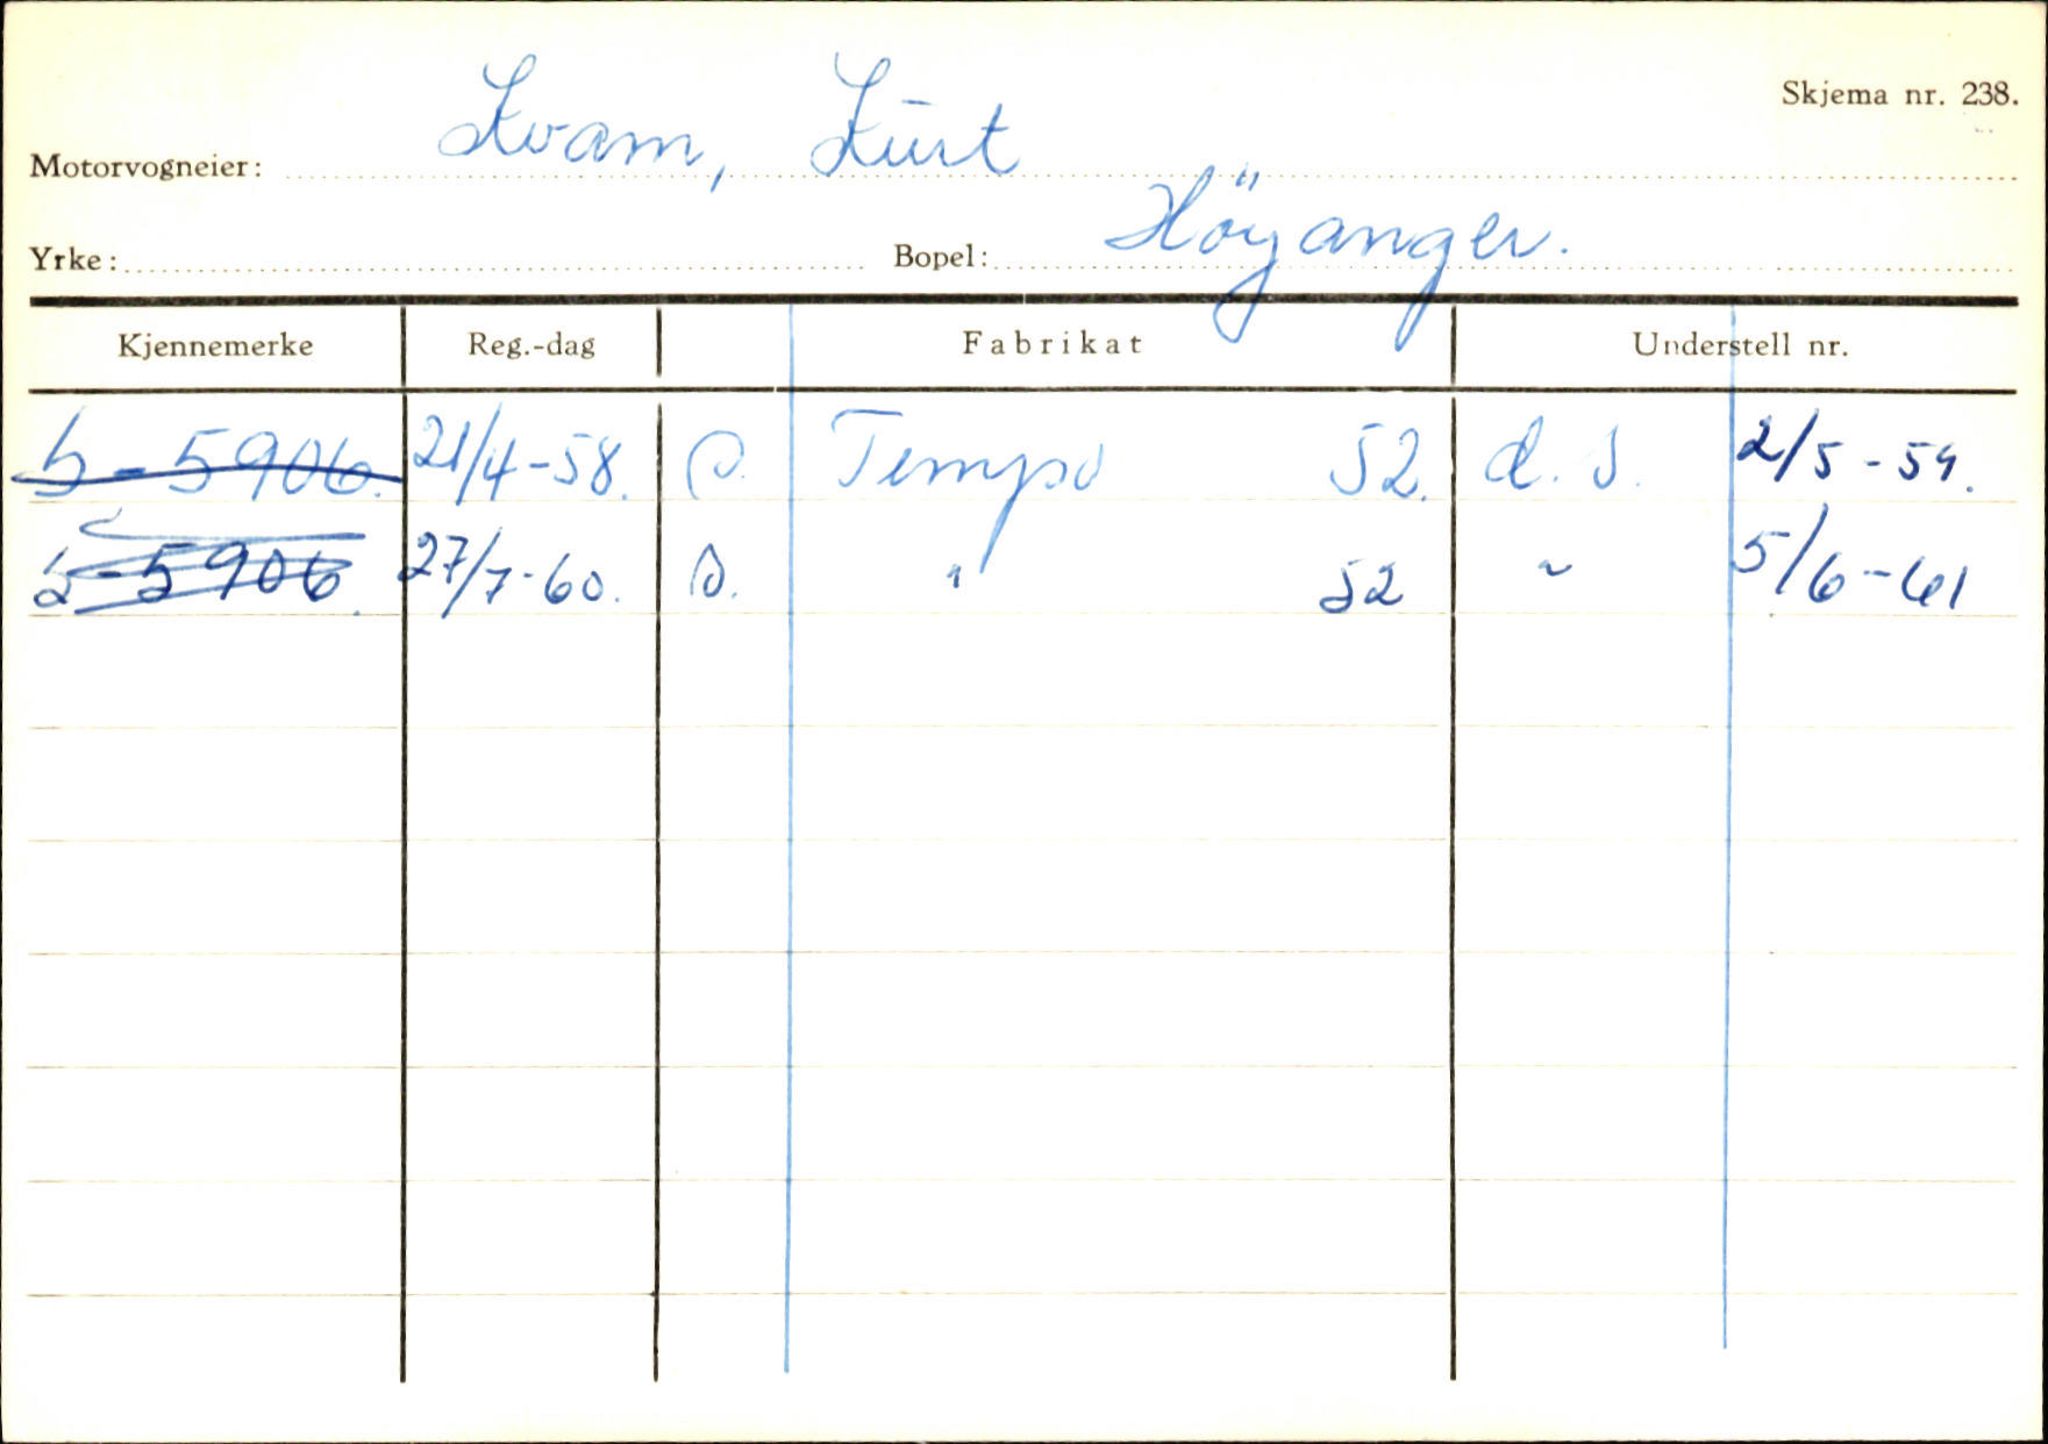 Skjema nr. 238.
Motorvogneier: Kvam, Kurt
Yrke: Bopel: Höyanger.
Kjennemerke Reg.-dag Fabrikat Understell nr.
S-5906. 21/4-58. Tempo 52. d. S. 2/5-59.
S-5906. 27/7-60. " 52 " 5/6-61